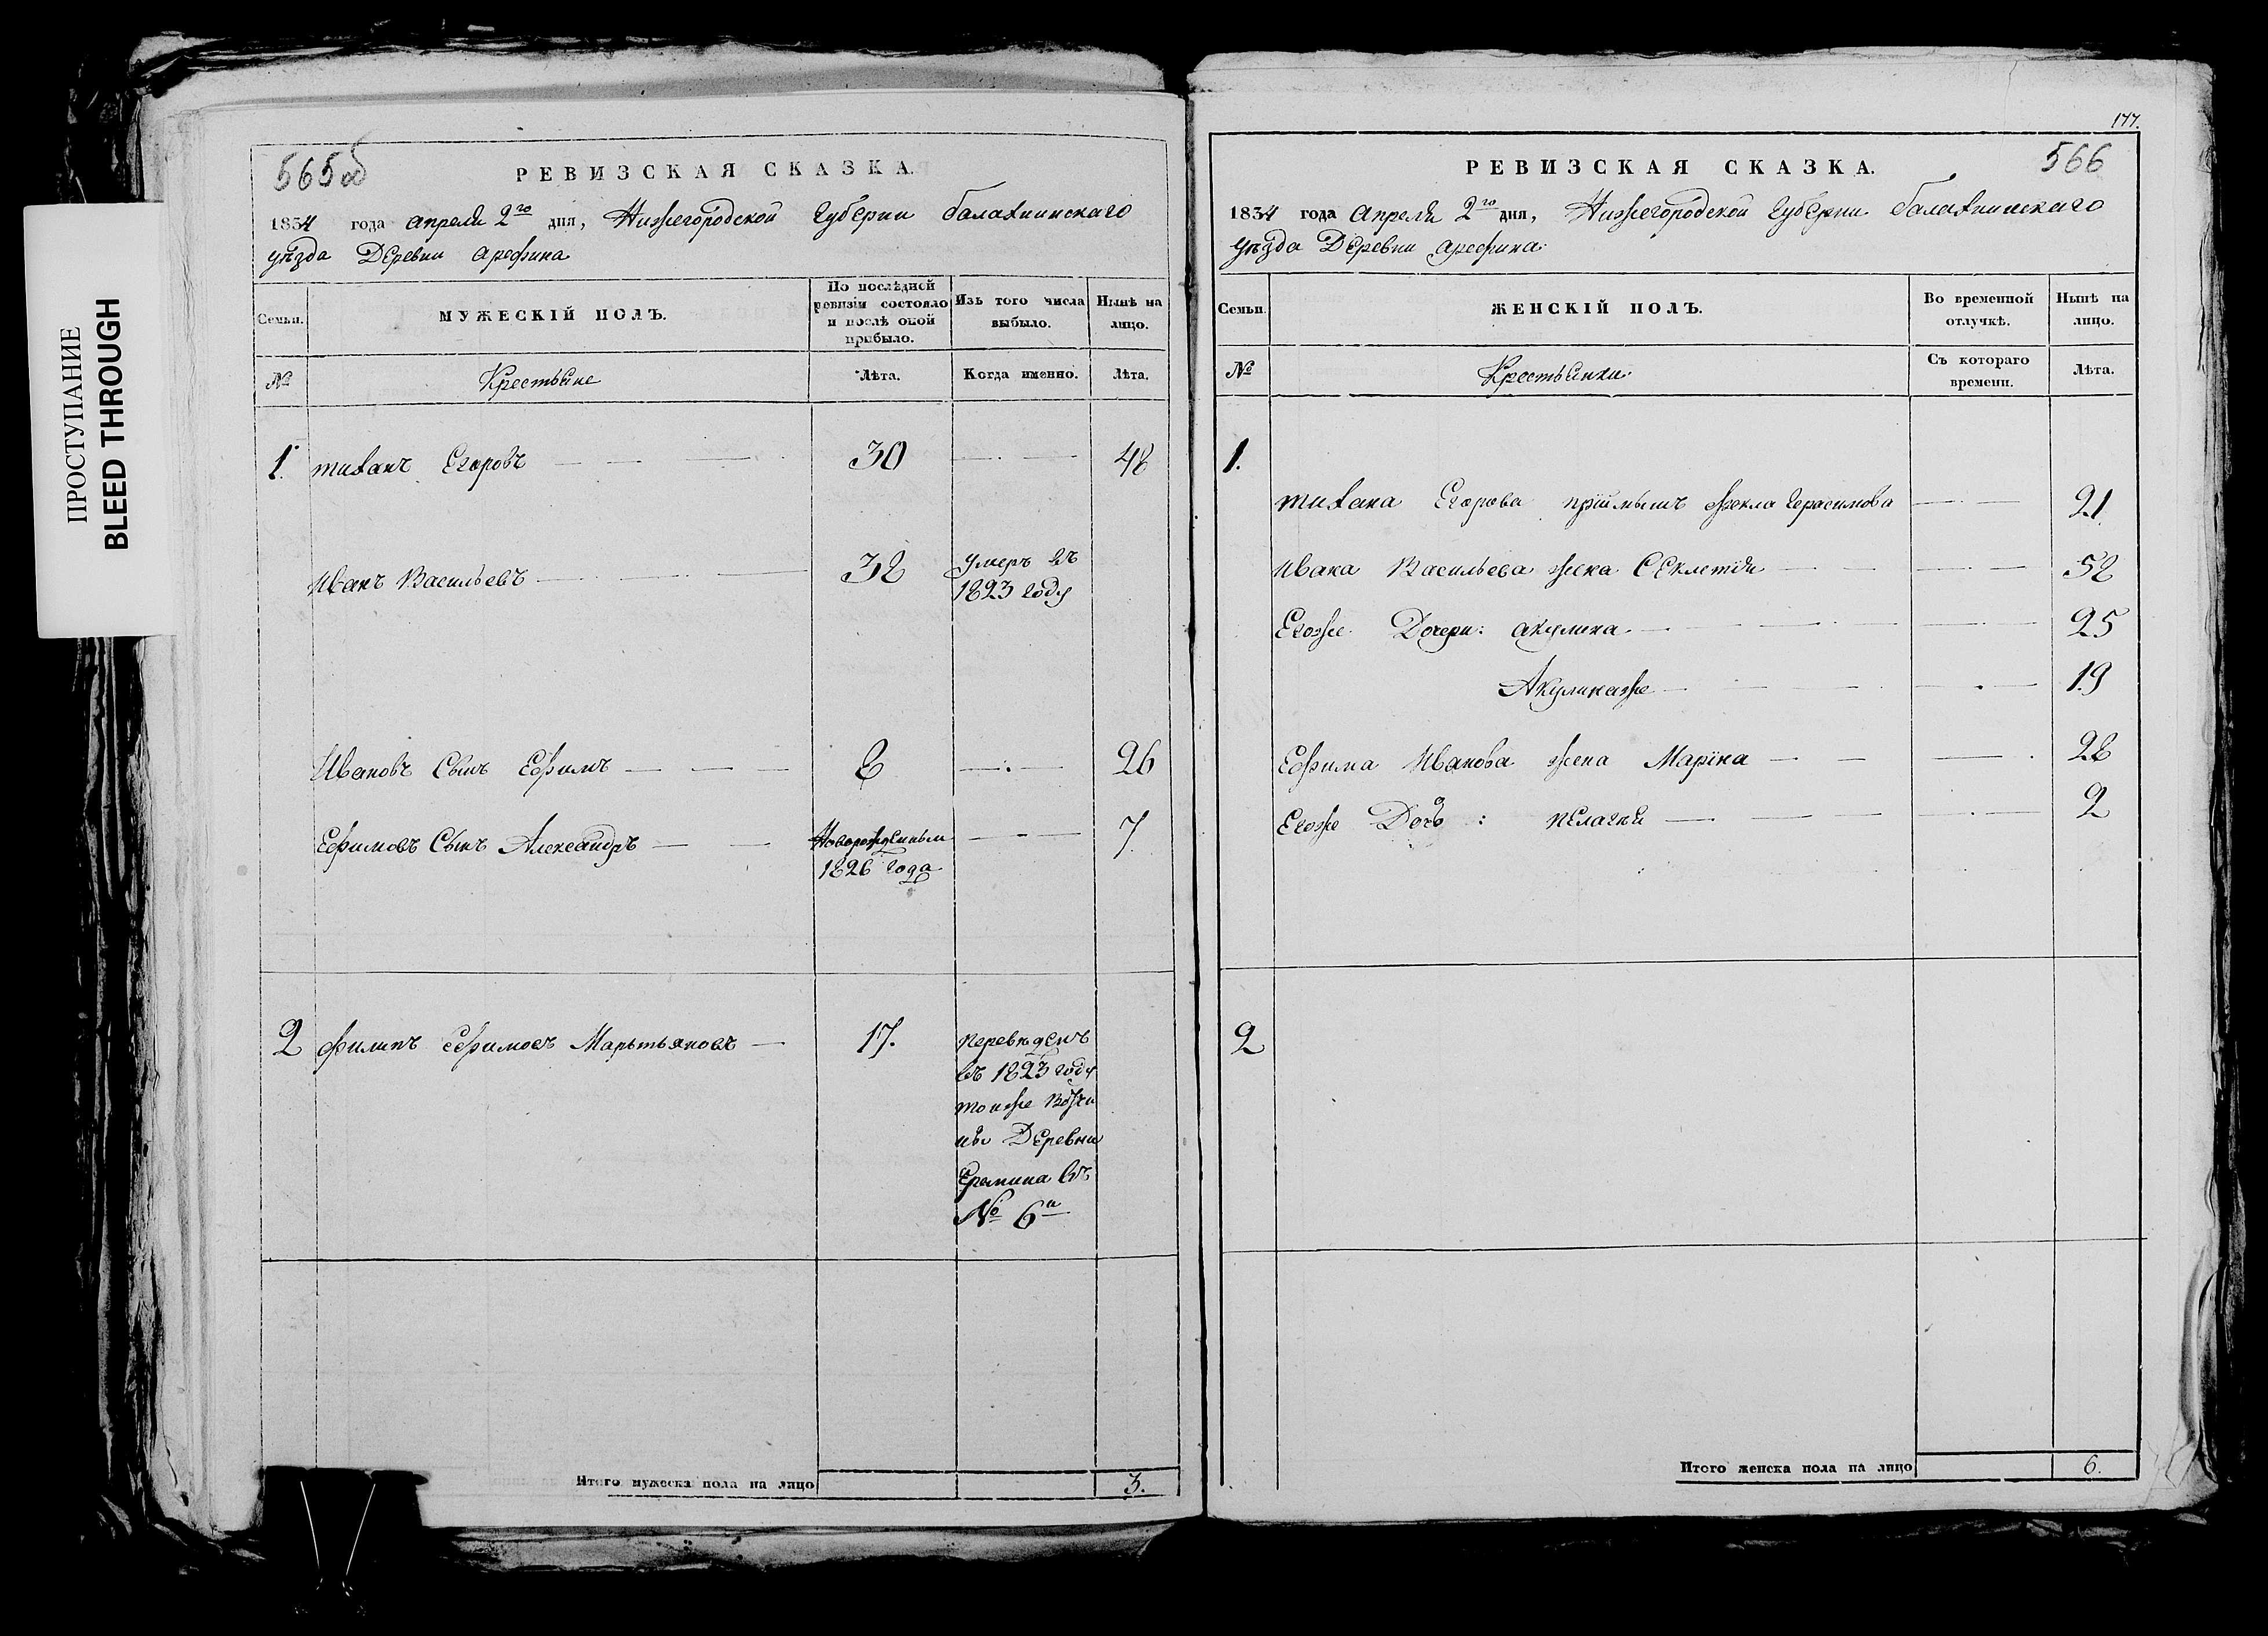 ПРОСТУПАНИЕ
BLEED THROUGH
565об
РЕВИЗСКАЯ СКАЗКА.
1834 года апреля 2го дня, Нижегородской Губернии балахнинскаго
уѣзда Деревни арефина
Семьи.
МУЖЕСКІЙ ПОЛЪ.
По послѣдней ревизіи состояло и послѣ оной прибыло.
Изъ того числа выбыло.
Нынѣ на лицо.
№
Крестьяне
Лѣта.
Когда именно.
Лѣта.
1. тиханъ Егоровъ 30 48
Иванъ Васильевъ 38 умеръ въ
1823 году
Ивановъ Сынъ Ефимъ 8 26
Ефимовъ Сынъ Александръ Новорожденный 7
1826 года
2 филипъ Ефимовъ Мартьяновъ 17. переведенъ
въ 1823 году
тоиже
Деревни
Еремина въ
№ 6й
Итого мужеска пола на лицо 3.
177.
566
РЕВИЗСКАЯ СКАЗКА.
1834 года апреля 2го дня, Нижегородской Губернии балахнинскаго
уѣзда Деревни арефина
Семьи.
ЖЕНСКІЙ ПОЛЪ.
Во временной отлучкѣ.
Нынѣ на лицо.
№
Крестьянки
Съ котораго времени.
Лѣта.
1.
тихана Егорова пріймышъ фекла Герасимова 21
Ивана Васильева жена Секлетия 58
Егоже Дочери: акулина 25
Акулинаже 19
Ефима Иванова жена Маріна 28
Егоже Дочь: пелагия 2
2
Итого женска пола на лицо 6.